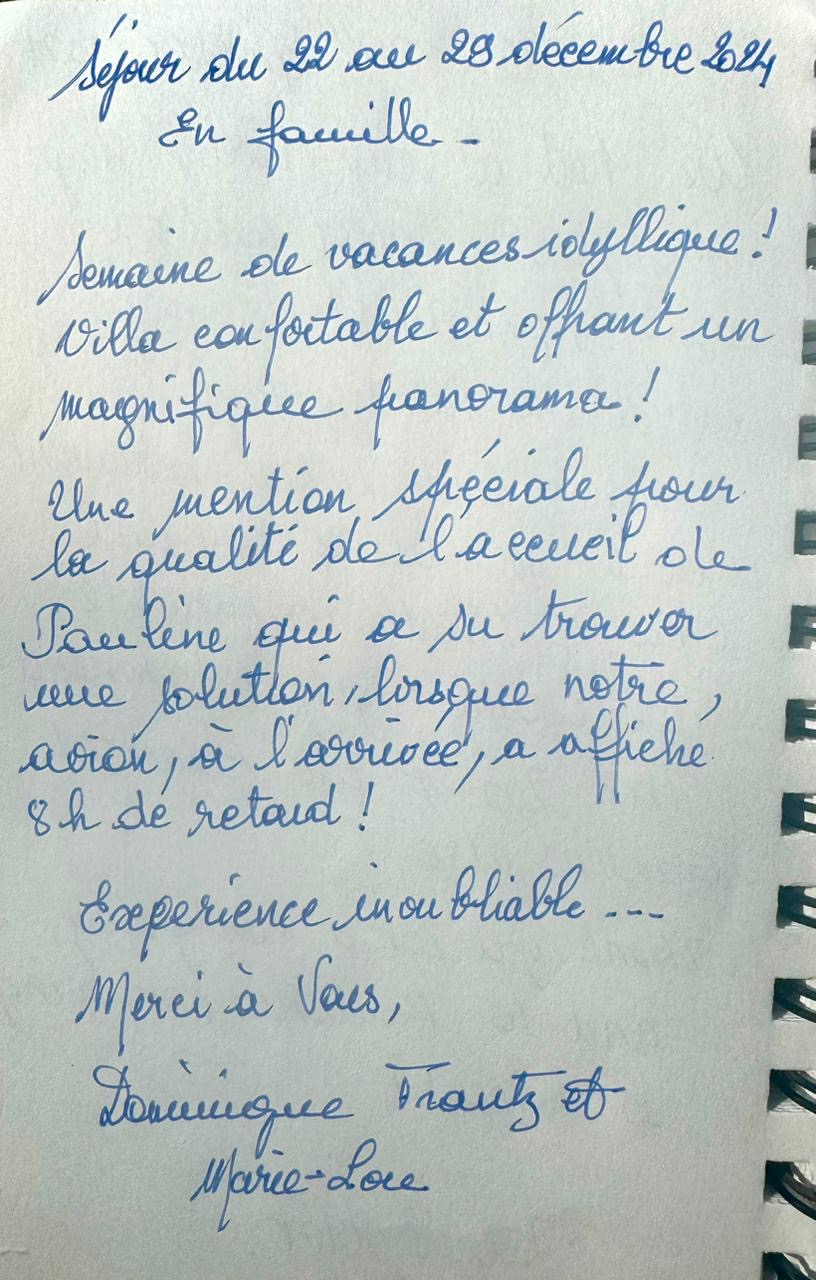 Séjour du 22 au 29 décembre 2024
En famille -
Semaine de vacances idyllique !
Villa confortable et offrant un
magnifique panorama !
Une mention spéciale pour
la qualité de l'accueil de
Pauline qui a su trouver
une solution, lorsque notre,
avion, à l'arrivée, a affiché
8h de retard !
Expérience inoubliable ---
Merci à Vous,
Dominique Trautz et
Marie-Lou